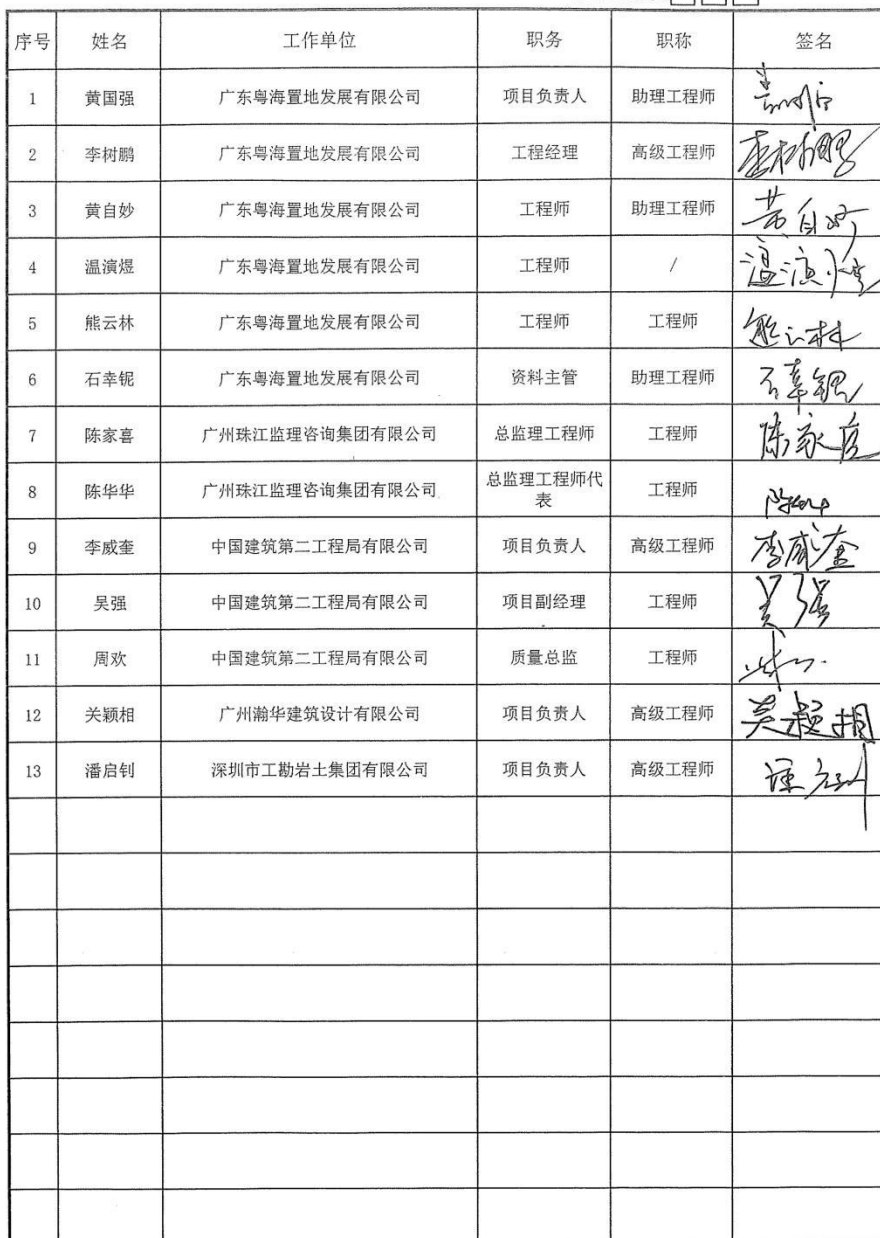 序号 姓名 工作单位 职务 职称 签名
1 黄国强 广东粤海置地发展有限公司 项目负责人 助理工程师
2 李树鹏 广东粤海置地发展有限公司 工程经理 高级工程师 李树鹏
3 黄自妙 广东粤海置地发展有限公司 工程师 助理工程师 黄自妙
4 温演煜 广东粤海置地发展有限公司 工程师 / 温演煜
5 熊云林 广东粤海置地发展有限公司 工程师 工程师 熊云林
6 石幸铌 广东粤海置地发展有限公司 资料主管 助理工程师 石幸铌
7 陈家喜 广州珠江监理咨询集团有限公司 总监理工程师 工程师 陈家喜
8 陈华华 广州珠江监理咨询集团有限公司 总监理工程师代 工程师
表
9 李威奎 中国建筑第二工程局有限公司 项目负责人 高级工程师 李威奎
10 吴强 中国建筑第二工程局有限公司 项目副经理 工程师 吴强
11 周欢 中国建筑第二工程局有限公司 质量总监 工程师
12 关颖相 广州瀚华建筑设计有限公司 项目负责人 高级工程师 关颖相
13 潘启钊 深圳市工勘岩土集团有限公司 项目负责人 高级工程师